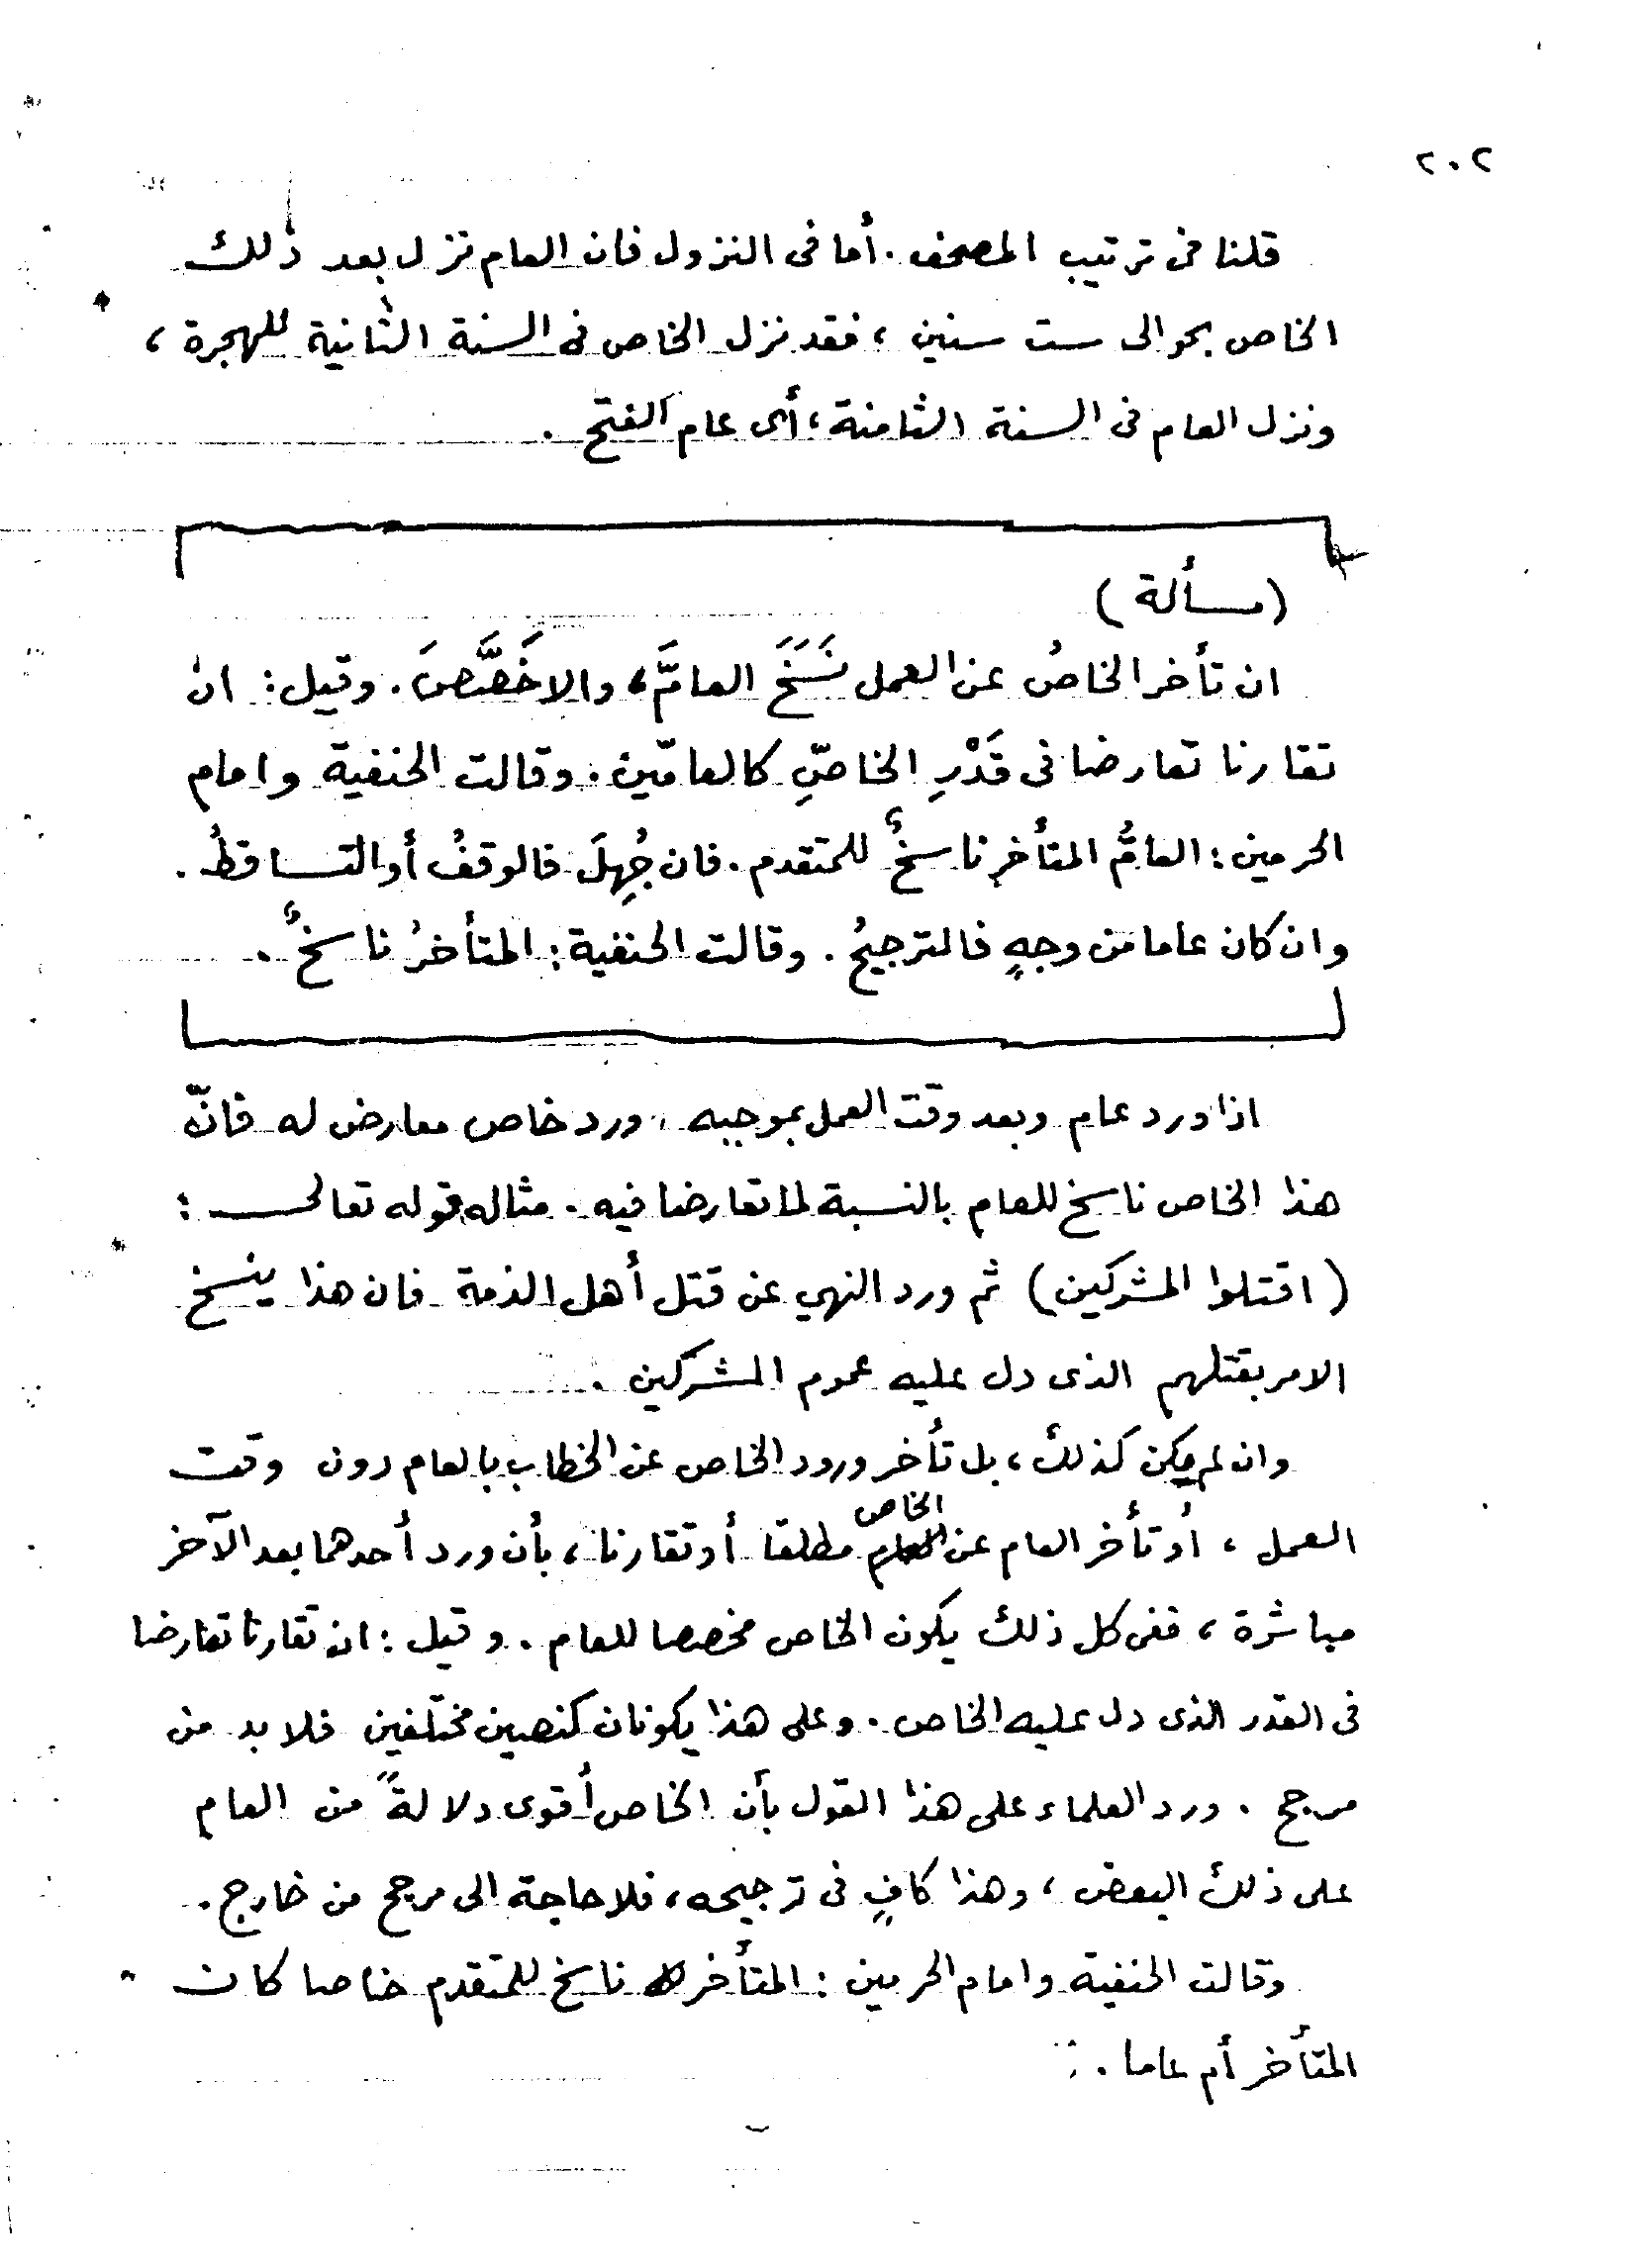 ٢٠٢
قلنا فى ترتيب المصحف . أما فى النزول فان العام نزل بعد ذلك
الخاص بحوالى ست سنين ، فقد نزل الخاص فى السنة الثانية للهجرة ،
ونزل العام فى السنة الثامنة ، أى عام الفتح .
( مسألة )
ان تأخر الخاصُ عن العمل نَسَخَ العامَّ ، والا خَصَّصَ . وقيل : ان
تقارنا تعارضا فى قَدْرِ الخاصِّ كالعامّين . وقالت الحنفية وامام
الحرمين : العامُّ المتأخر ناسخٌ للمتقدم . فان جُهِلَ فالوقفُ أو التساقطُ .
وان كان عاما من وجهٍ فالترجيحُ . وقالت الحنفية : المتأخرُ ناسخٌ .
اذا ورد عام وبعد وقت العمل بموجبه ، ورد خاص معارض له فانّ
هذا الخاص ناسخ للعام بالنسبة لما تعارضا فيه . مثاله قوله تعالى :
( اقتلوا المشركين ) ثم ورد النهي عن قتل أهل الذمة فان هذا ينسخ
الامر بقتلهم الذى دل عليه عموم المشركين .
وان لم يكن كذلك ، بل تأخر ورود الخاص عن الخطاب بالعام دون وقت
العمل ، أو تأخر العام عن الخاص مطلقا أو تقارنا ، بأن ورد أحدهما بعد الآخر
مباشرة ، ففى كل ذلك يكون الخاص مخصصا للعام . وقيل : ان تقارنا تعارضا
فى القدر الذى دل عليه الخاص . وعلى هذا يكونان كنصين مختلفين فلا بد من
مرجح . ورد العلماء على هذا القول بأن الخاص أقوى دلالةً من العام
على ذلك البعض ، وهذا كافٍ فى ترجيحه ، فلا حاجة الى مرجح من خارج .
وقالت الحنفية وامام الحرمين : المتأخر ناسخ للمتقدم خاصا كان
المتأخر أم عاما .